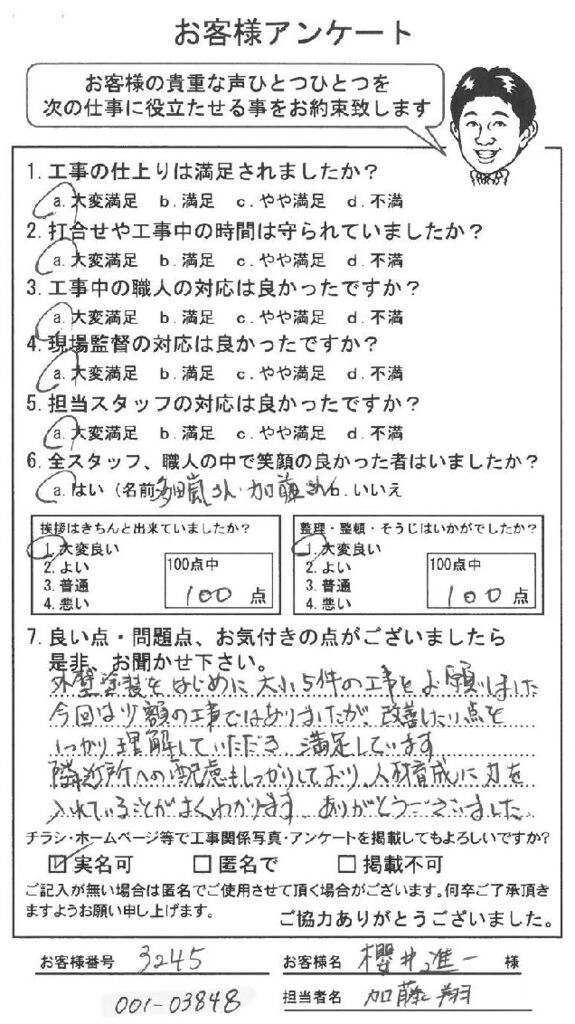 お客様アンケート
お客様の貴重な声ひとつひとつを
次の仕事に役立たせる事をお約束致します
1. 工事の仕上りは満足されましたか？
a. 大変満足 b. 満足 c. やや満足 d. 不満
2. 打合せや工事中の時間は守られていましたか？
a. 大変満足 b. 満足 c. やや満足 d. 不満
3. 工事中の職人の対応は良かったですか？
a. 大変満足 b. 満足 c. やや満足 d. 不満
4. 現場監督の対応は良かったですか？
a. 大変満足 b. 満足 c. やや満足 d. 不満
5. 担当スタッフの対応は良かったですか？
a. 大変満足 b. 満足 c. やや満足 d. 不満
6. 全スタッフ、職人の中で笑顔の良かった者はいましたか？
a. はい（名前 多田嵐さん・加藤さん b. いいえ
挨拶はきちんと出来ていましたか？
1. 大変良い
2. よい
3. 普通
4. 悪い
100点中
100 点
整理・整頓・そうじはいかがでしたか？
1. 大変良い
2. よい
3. 普通
4. 悪い
100点中
100 点
7. 良い点・問題点、お気付きの点がございましたら
是非、お聞かせ下さい。
外壁塗装をはじめに大小5件の工事をお願いしました
今回は少額の工事ではありましたが、改善したい点を
しっかり理解していただき 満足しています
隣近所への配慮もしっかりしており、人材育成に力を
入れていることがよくわかります ありがとうございました
チラシ・ホームページ等で工事関係写真・アンケートを掲載してもよろしいですか？
☑ 実名可 □ 匿名で □ 掲載不可
ご記入が無い場合は匿名でご使用させて頂く場合がございます。何卒ご了承頂き
ますようお願い申し上げます。
ご協力ありがとうございました。
お客様番号 3245
お客様名 櫻井進一 様
001-03848
担当者名 加藤翔